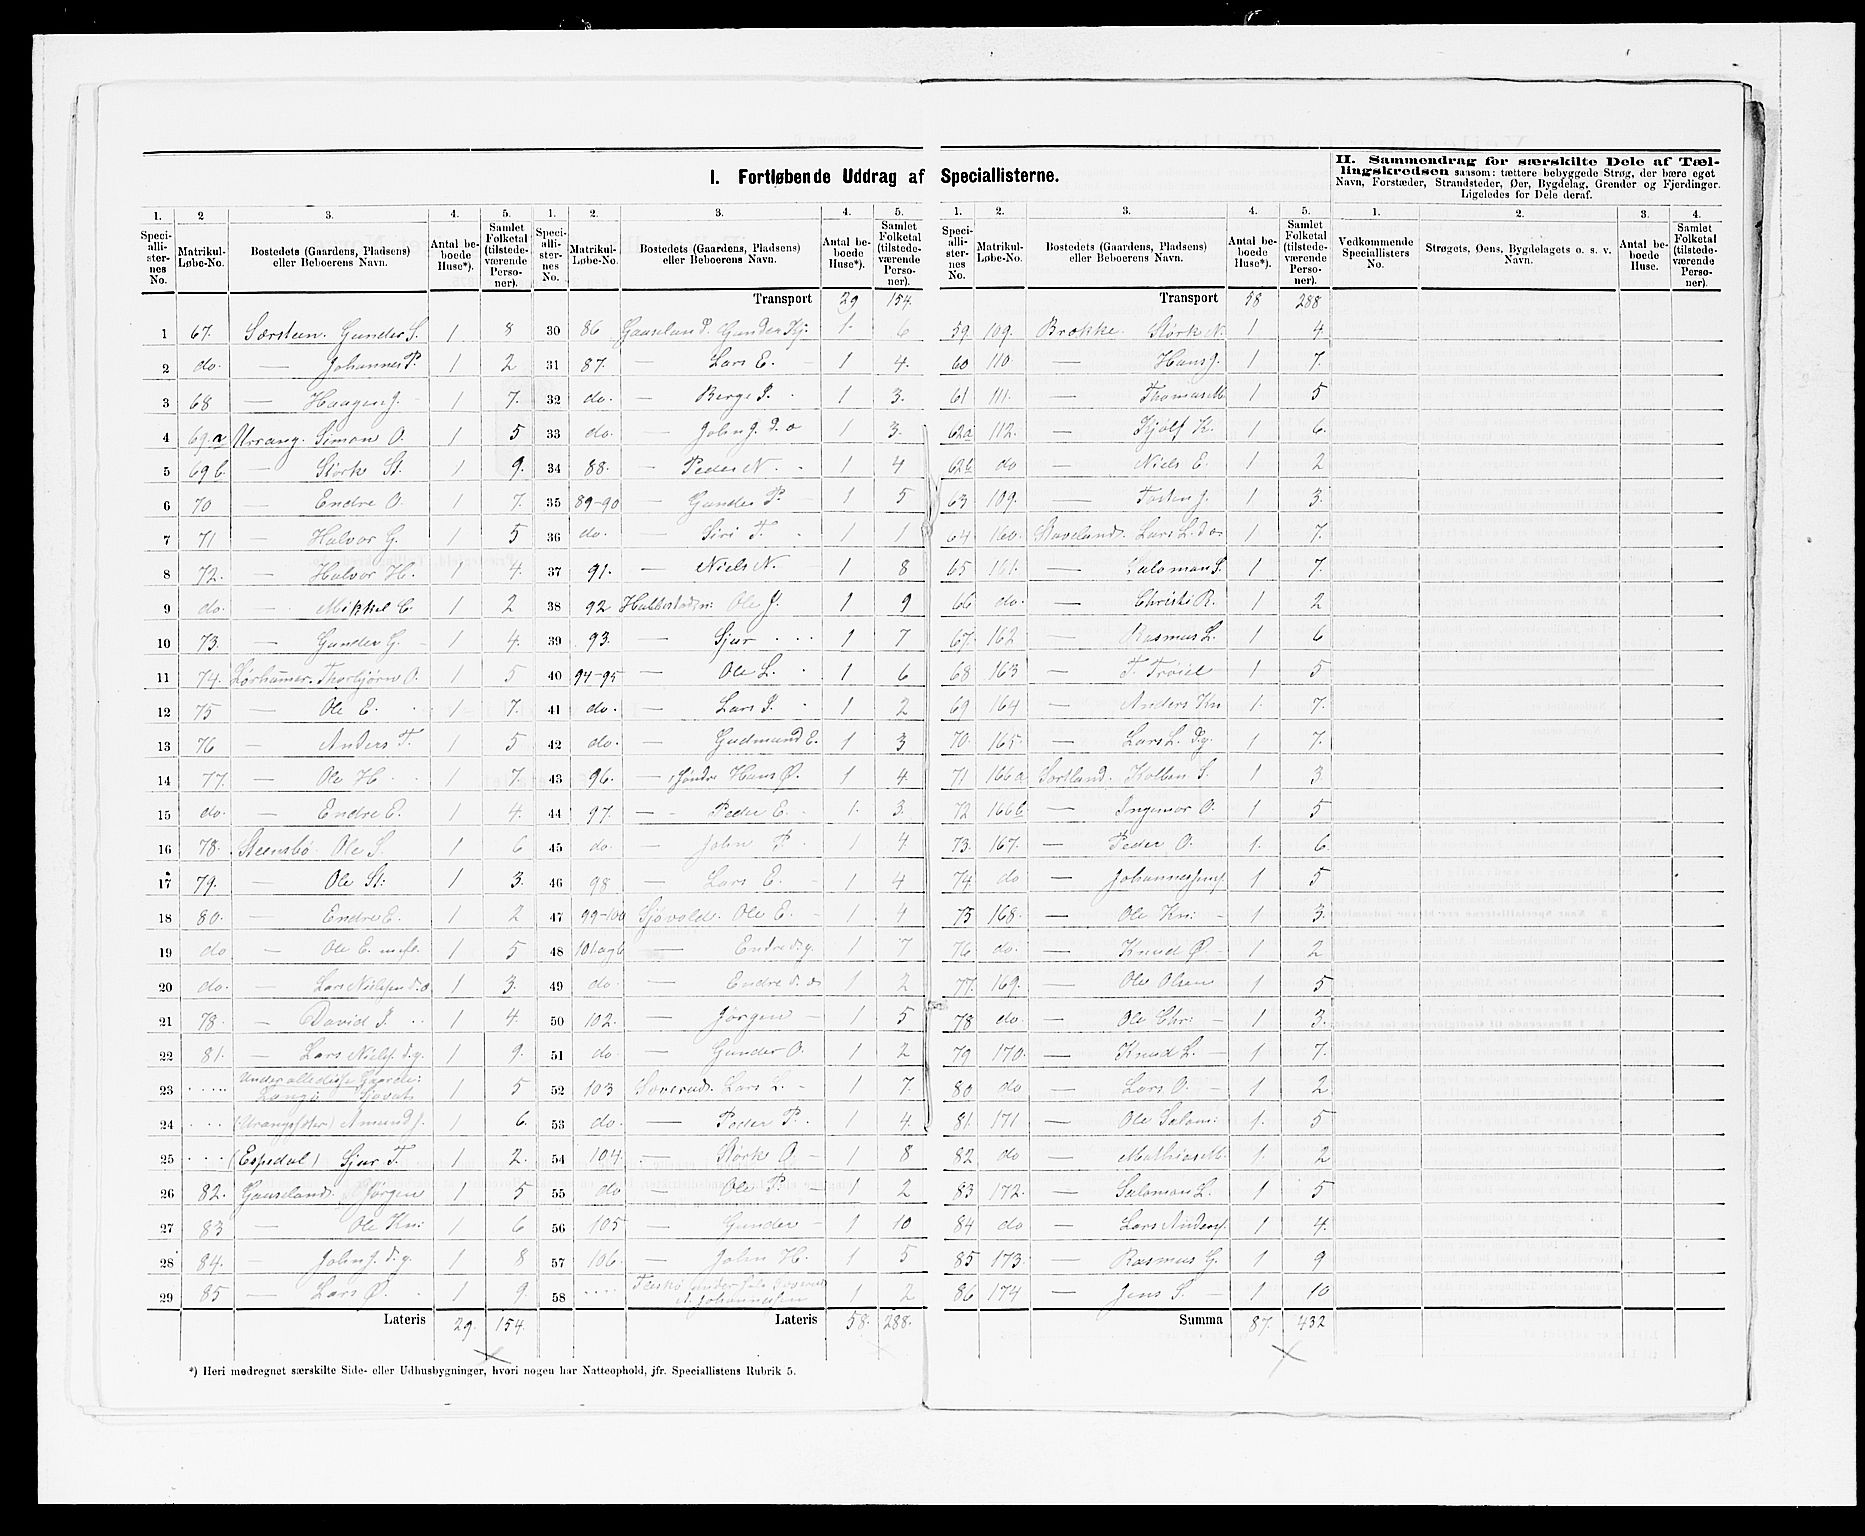 I. Fortløbende Uddrag af Speciallisterne.
II. Sammendrag for særskilte Dele af Tæl-
lingskredsen saasom: tættere bebyggede Strøg, der bære eget
Navn, Forstæder, Strandsteder, Øer, Bygdelag, Grender og Fjerdinger.
Ligeledes for Dele deraf.
1. 2 3. 4. 5. 1. 2. 3. 4. 5. 1. 2. 3. 4. 5. 1. 2. 3. 4.
Speciallisternes No. Matrikul-Løbe-No. Bostedets (Gaardens, Pladsens) eller Beboerens Navn. Antal beboede Huse*). Samlet Folketal (tilstedeværende Personer).
Speciallisternes No. Matrikul-Løbe-No. Bostedets (Gaardens, Pladsens) eller Beboerens Navn. Antal beboede Huse*). Samlet Folketal (tilstedeværende Personer).
Speciallisternes No. Matrikul-Løbe-No. Bostedets (Gaardens, Pladsens) eller Beboerens Navn. Antal beboede Huse*). Samlet Folketal (tilstedeværende Personer).
Vedkommende Speciallisters No. Strøgets, Øens, Bygdelagets o. s. v. Navn. Antal beboede Huse. Samlet Folketal (tilstedeværende Personer).
1 67. Særsteen. Gunder S. 1 8
2 do. — Johannes P. 1 2
3 68 — Haagen J. 1 7.
4 69.a Urrang. Simon O. 1 5
5 69 b. — Størk St. 1 9.
6 70 — Endre O. 1 7.
7 71 — Halvor G. 1 5
8 72. — Halvor H. 1 4.
9 do. — Mikkel E. 1 2
10 73. — Gunder G. 1 4.
11 74. Thorbjørn O. 1 5
12 75 — Ole E. 1 7.
13 76 — Anders T. 1 5
14 77. — Ole H. 1 7.
15 do. — Endre E. 1 4.
16 78. Steensbö. Ole S. 1 6
17 79. — Ole St: 1 3.
18 80. — Endre E. 1 2
19 do — Ole E. 1 5
20 do. — Lars Nielsen d.o. 1 3.
21 78. — David P. 1 4.
22 81. — Lars Niels. d.y. 1 9.
23 Under alle disse Gaarde: 1 5
24 Amund J. 1 6.
25 (Espedal) Sjur T. 1 2.
26 82. Gauseland. Jörgen 1 5
27 83 — Ole Kn: 1 6
28 84. — John J. d.y. 1 8
29 85 — Lars Ø. 1 9.
Lateris 29. 154.
Transport 29 154.
30 86 Gauseland. Gunder Kj: 1. 6
31 87. — Lars E. 1 4.
32 do. — Berge P. 1 3.
33 do. — John J. d. o 1 3.
34 88. — Peder N. 1 4
35 89-90 — Gunder P. 1 5
36 do. — Siri T. 1 1
37 91. — Niels N. 1 8
38 92 Ole J. 1 9
39 93. — Sjur 1 7
40 94-95 — Ole L. 1 6
41 do. — Lars P. 1 2
42 do. — Gudmund E. 1 3
43 96. — Hans Ø. 1 4
44 97. — Peder E. 1. 3.
45 do. — John P. 1 4
46 98 — Lars E. 1 4
47 99-100 Sjövold. Ole E. 1 4
48 — Endre d.y. 1 7
49 do. — Endre d. o 1 2
50 102. — Jörgen 1 5
51 do. — Gunder O. 1 2
52 103 Lars L. 1 7
53 do. — Peder P. 1 4.
54 104. — Störk O 1 8
55 do — Ole P. 1 2
56 105 — Gunder 1 10
57 106. — John H. 1 5
58 Johannessen 1 2
Lateris 58. 288.
Transport 58 288
59 109. Brække. Størk N. 1 4
60 110 — Hans J. 1 7.
61 111. — Thomas M. 1 5
62a 112. — Kjölf K. 1 6.
62b do — Niels E. 1 2
63 109. — Tosten J. 1 3.
64 160. Staveland. Lars L. d o. 1 7.
65 161. — Salomon S. 1 7.
66 do. — Christi R. 1 2
67. 162 — Rasmus L. 1 6
68 163 — 1 5
69 164 — Anders Kn 1. 7.
70. 165. — Lars L. d.y. 1 7.
71 166a Sortland. Kolben S. 1 3.
72 166b — Ingemor O. 1 5
73. 167. — Peder O. 1. 6.
74 do — 1 5
75 168. — Ole Kn: 1. 3.
76 do. — Knud Ø. 1 2
77. 169. — Ole Olsen 1 5
78 do. — Ole Chr: 1 3.
79 170. — Knud L. 1 7.
80 do — Lars O. 1 2
81. 171 — Ole Salom: 1. 5
82 do — Mathias M. 1. 2
83 172. — Salomon L. 1 5
84 do — Lars Anders. 1 4.
85 173. — Rasmus G. 1 9
86 174 — Jens S. 1 10
Summa 87. 432
*) Heri medregnet særskilte Side- eller Udhusbygninger, hvori nogen har Natteophold, jfr. Speciallistens Rubrik 5.